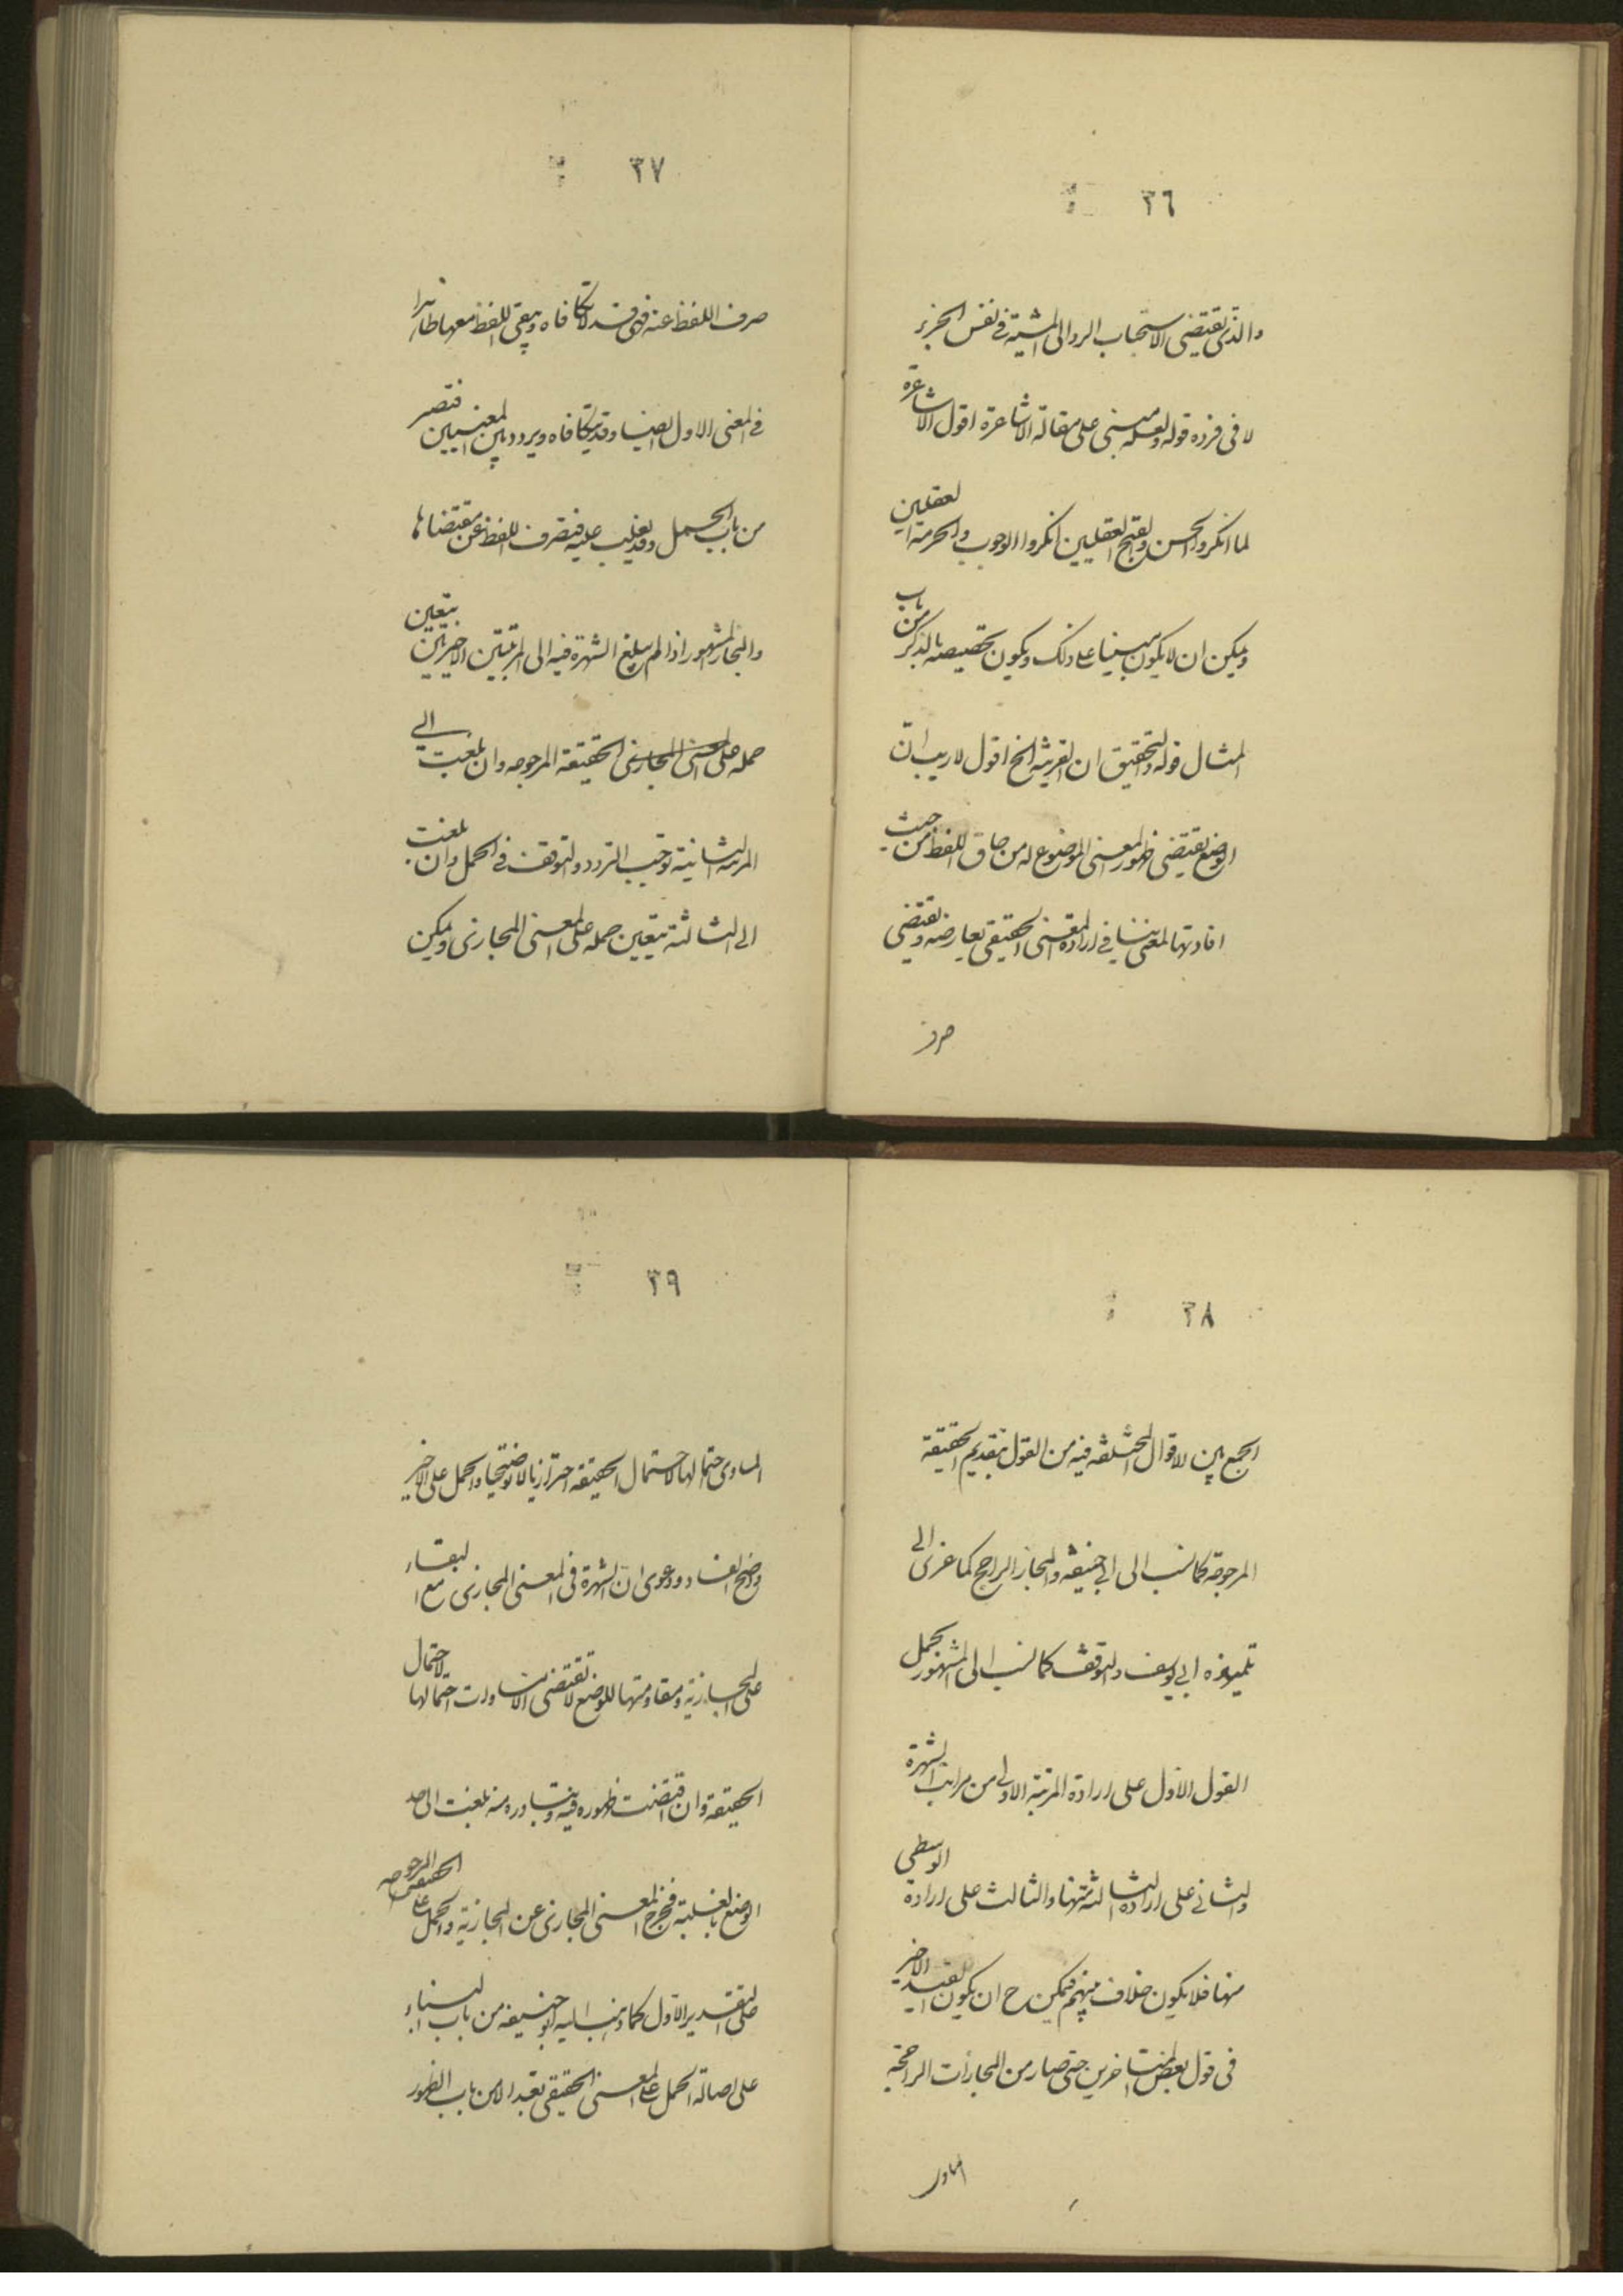 ٣٦
والذی یقتضی الاستحباب الرد الی المشیة فی نفس الجزء
لا فی فرده قوله ولعله مبنی علی مقالة الاشاعرة اقول الاشاعرة
لما انکروا الحسن والقبح العقلیین انکروا الوجوب والحرمة العقلیین
ویمکن ان لا یکون مبنیا علی ذلک ویکون تخصیصه بالذکر من باب
المثال قوله والتحقیق ان القرینة الخ اقول لا ریب انّ
الوضع یقتضی ظهور المعنی الموضوع له من حاق اللفظ من حیث
افادتها لمعنی ینافی ارادة المعنی الحقیقی یعارضه ویقتضی
صرف
٣٧
صرف اللفظ عنه فهی قد لا تکافاه ویبقی اللفظ معها ظاهرا
فی المعنی الاول ایضا وقد تکافاه ویردد بین المعنیین فتصیر
من باب المجمل وقد یغلب علیه فتصرف اللفظ عن مقتضاها
والمجاز المشهور اذا لم یبلغ الشهرة فیه الی المرتبتین الاخیرتین یتعین
حمله علی المعنی المجازی الحقیقة المرجوحه وان بلغت الی
المرتبه الثانیة توجب التردد والتوقف فی الحمل وان بلغت
الی الثالثة یتعین حمله علی المعنی المجازی ویمکن
٣٨
الجمع بین الاقوال المختلفة فیه من القول بتقدیم الحقیقة
المرجوحة کما نسب الی ابی حنیفة والمجاز الراجح کما عزی الی
تلمیذه ابی یوسف والتوقف کما نسب الی المشهور بحمل
القول الاول علی ارادة المرتبة الاولی من مراتب الشهرة
والثانی علی ارادة الثالثة منها والثالث علی ارادة الوسطی
منها فلا یکون خلاف بینهم فیمکن ح ان یکون القید الاخیر
فی قول بعض المتاخرین حتی صار من المجازات الراجحة
المساوی
٣٩
المساوی احتمالها لاحتمال الحقیقة احترازیا لا توضیحیا والحمل علی الاخیر
واضح الفساد ودعوی انّ الشهرة فی المعنی المجازی مع البقاء
علی المجازیة ومقاومتها للوضع لا تقتضی الا تساوی احتمالها لاحتمال
الحقیقة وان اقتضت ظهوره فیه وتبادره منه بلغت الی حد
الوضع بالغلبة فخرج المعنی المجازی عن المجازیة والحمل علی الحقیقة المرجوحه
علی التقدیر الاول کما ذهب الیه ابو حنیفه من باب البناء
علی اصالة الحمل علی المعنی الحقیقی تعبدا لا من باب الظهور